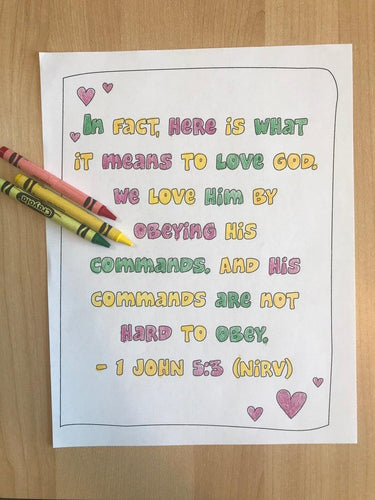 In FACT, HERE IS WHAT
IT MEANS TO LOVE GOD.
WE LOVE HIM BY
OBEYING HIS
COMMANDS. AND HIS
COMMANDS ARE NOT
HARD TO OBEY.
- 1 JOHN 5:3 (NiRV)
Crayola